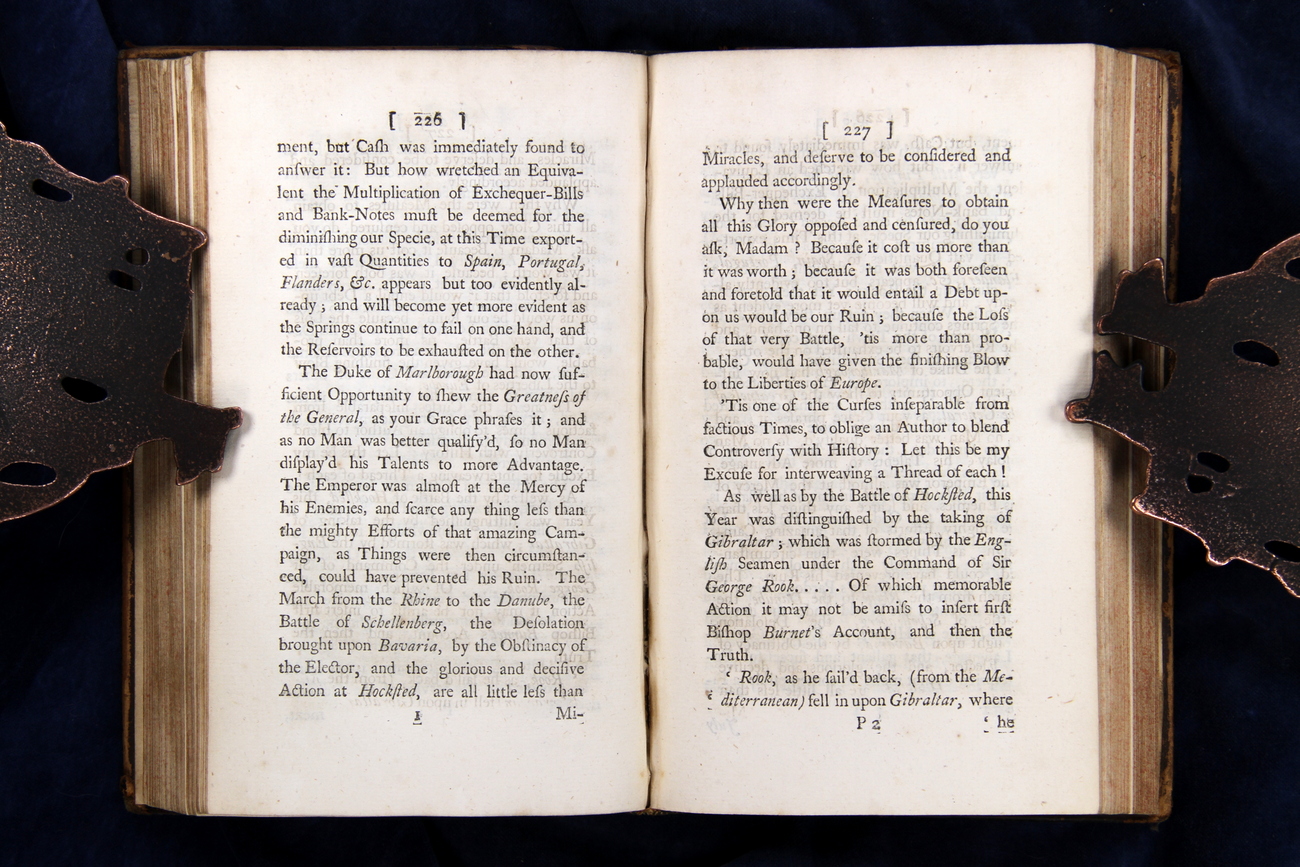 [ 226 ]
ment, but Caſh was immediately found to
anſwer it: But how wretched an Equiva-
lent the Multiplication of Exchequer-Bills
and Bank-Notes muſt be deemed for the
diminiſhing our Specie, at this Time export-
ed in vaſt Quantities to Spain, Portugal,
Flanders, &c. appears but too evidently al-
ready ; and will become yet more evident as
the Springs continue to fail on one hand, and
the Reſervoirs to be exhauſted on the other.
The Duke of Marlborough had now ſuf-
ficient Opportunity to ſhew the Greatneſs of
the General, as your Grace phraſes it ; and
as no Man was better qualify'd, ſo no Man
diſplay'd his Talents to more Advantage.
The Emperor was almoſt at the Mercy of
his Enemies, and ſcarce any thing leſs than
the mighty Efforts of that amazing Cam-
paign, as Things were then circumſtan-
eed, could have prevented his Ruin. The
March from the Rhine to the Danube, the
Battle of Schellenberg, the Deſolation
brought upon Bavaria, by the Obſtinacy of
the Elector, and the glorious and deciſive
Action at Hockſted, are all little leſs than
1 Mi-
[ 227 ]
Miracles, and deſerve to be conſidered and
applauded accordingly.
Why then were the Meaſures to obtain
all this Glory oppoſed and cenſured, do you
aſk, Madam ? Becauſe it coſt us more than
it was worth ; becauſe it was both foreſeen
and foretold that it would entail a Debt up-
on us would be our Ruin ; becauſe the Loſs
of that very Battle, 'tis more than pro-
bable, would have given the finiſhing Blow
to the Liberties of Europe.
'Tis one of the Curſes inſeparable from
factious Times, to oblige an Author to blend
Controverſy with Hiſtory : Let this be my
Excuſe for interweaving a Thread of each !
As well as by the Battle of Hockſted, this
Year was diſtinguiſhed by the taking of
Gibraltar ; which was ſtormed by the Eng-
liſh Seamen under the Command of Sir
George Rook..... Of which memorable
Action it may not be amiſs to inſert firſt
Biſhop Burnet's Account, and then the
Truth.
‘ Rook, as he ſail'd back, (from the Me-
‘ diterranean) fell in upon Gibraltar, where
P 2 ‘ he